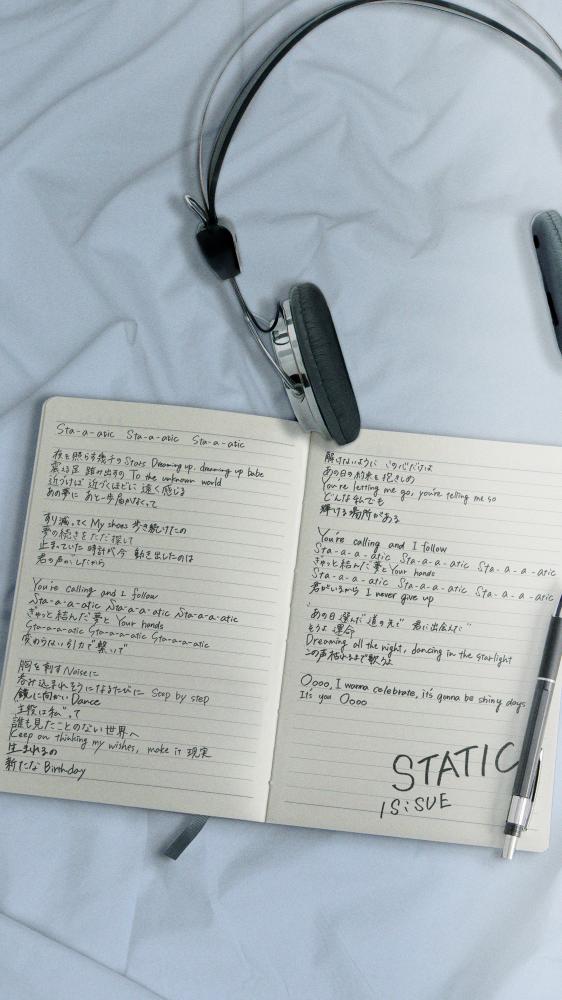 Sta-a-atic Sta-a-atic Sta-a-atic
夜を照らす幾千の Stars Dreaming up, dreaming up babe
震える足 踏み出すの To the unknown world
近づけば 近づくほどに 遠く感じる
あの夢に あと一歩届かなくって
すり減ってく My shoes 歩き続けたの
夢の続きをただ探して
止まっていた 時計が今 動き出したのは
君の声がしたから
You're calling and I follow
Sta-a-a-atic Sta-a-a-atic Sta-a-a-atic
ぎゅっと結んだ 夢と Your hands
Sta-a-a-atic Sta-a-a-atic Sta-a-a-atic
変わらない引力で"繋いで"
胸を刺す Noiseに
呑み込まれそうになるたびに Step by step
鏡に向かい Dance
主役は私"って
誰も見たことのない世界へ
Keep on thinking my wishes, make it 現実
生まれるの
新たな Birthday
解けないように この心だけは
あの日の約束を抱きしめ
You're letting me go, you're telling me so
どんな私でも
輝ける場所がある
You're calling and I follow
Sta-a-a-atic Sta-a-a-atic Sta-a-a-atic
ぎゅっと結んだ 夢と Your hands
Sta-a-a-atic Sta-a-a-atic Sta-a-a-atic
君がいるから I never give up
"あの日 選んだ" 道の先で 君に出会えた"
そうよ 運命
Dreaming all the night, dancing in the starlight
この声 枯れるまで歌うよ
Oooo, I wanna celebrate, it's gonna be shiny days
It's you Oooo
STATIC
IS:SUE